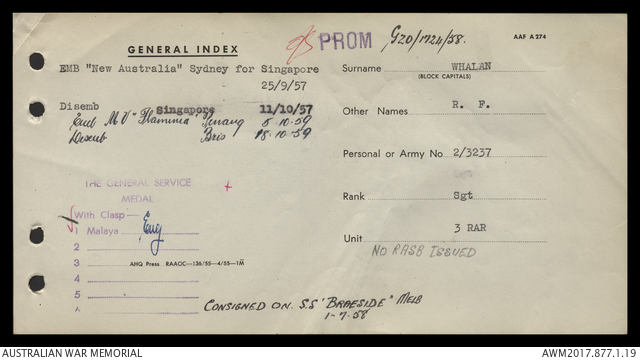 GENERAL INDEX
PROM G20/1724/58.
AAF A274
EMB "New Australia" Sydney for Singapore
25/9/57
Disemb Singapore 11/10/57
Emb M V "Flaminia" Penang 5.10.59
Disemb Bris 18.10.59
THE GENERAL SERVICE
MEDAL
With Clasp—
1 Malaya
2
3
4
5
AHQ Press RAAOC—136/55—4/55—1M
CONSIGNED ON S.S "BRAESIDE" MELB
1-7.58
Surname WHALAN
(BLOCK CAPITALS)
Other Names R. F.
Personal or Army No 2/3237
Rank Sgt
Unit 3 RAR
NO RASB ISSUED
AUSTRALIAN WAR MEMORIAL
AWM2017.877.1.19